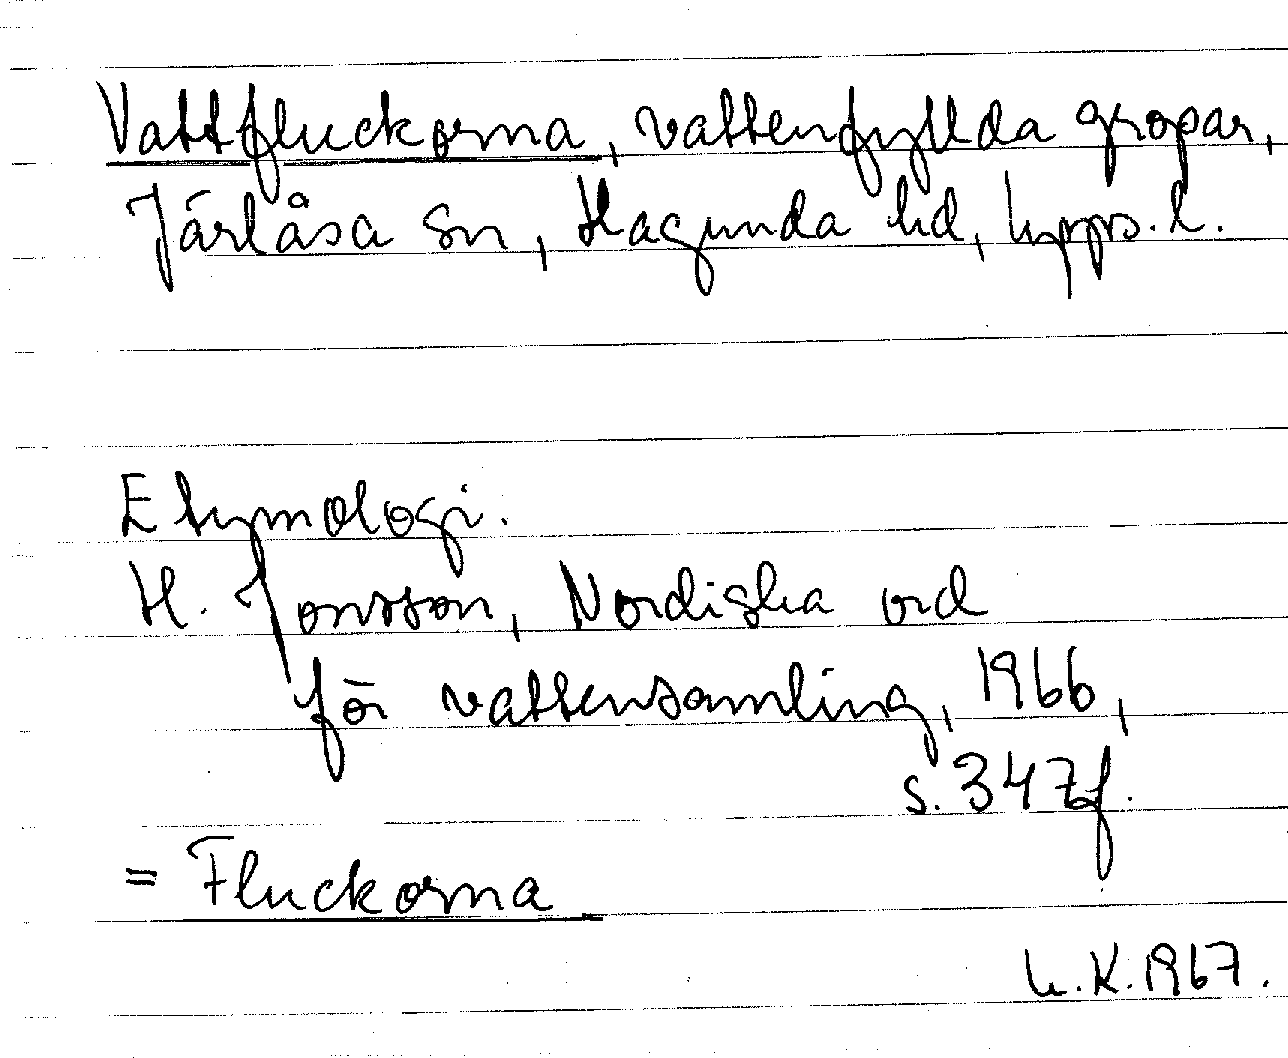 Vattfluckorna, vattenfyllda gropar,
Järlåsa sn, Hagunda hd, Upps. l.
Etymologi.
H. Jonsson, Nordiska ord
för vattensamling, 1966,
s. 347f.
= Fluckorna
U.K. 1967.